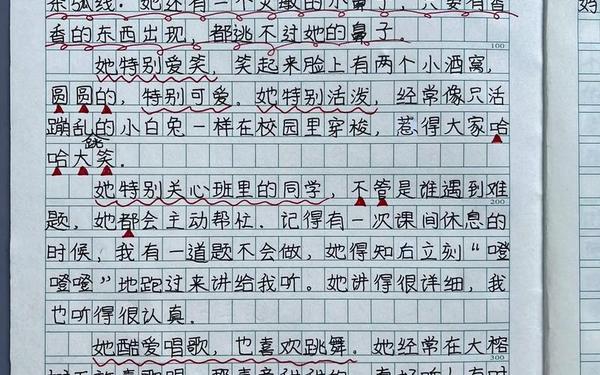 条弧线．她还有一个灵敏的小鼻子，只要有香
香的东西出现，都逃不过她的鼻子．
100
她特别爱笑，笑起来脸上有两个小酒窝，
圆圆的，特别可爱．她特别活泼，经常像只活
蹦乱跳的小白兔一样在校园里穿梭，惹得大家哈
哈大笑．
她特别关心班里的同学，不管是谁遇到难
200
题，她都会主动帮忙．记得有一次课间休息的
时候，我有一道题不会做，她得知后立刻“噔
噔噔”地跑过来讲给我听．她讲得很详细，我
也听得很认真．
300
她酷爱唱歌，也喜欢跳舞．她经常在大榕